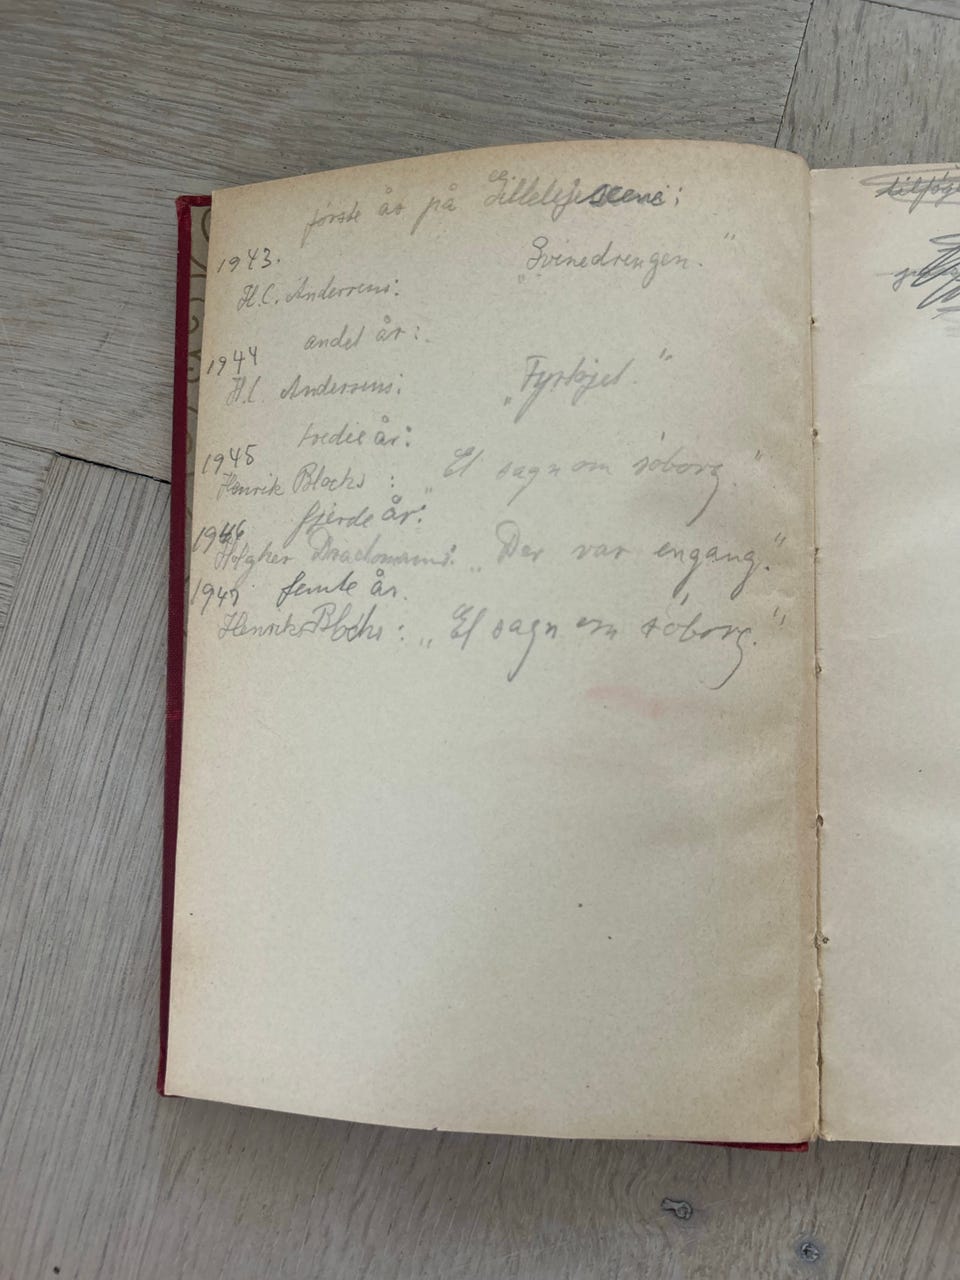 første år på Lillelejescene:
1943.
H.C. Andersens: "Svinedrengen."
andet år:
1944
H.C. Andersens: "Fyrtøjet."
tredie år:
1945
Henrik Blochs: "Et sagn om söborg."
fjerde år:
1946
Holgher Drachmanns: "Der var engang."
1947 femte år.
Henriks Blochs: "Et sagn om söborg."